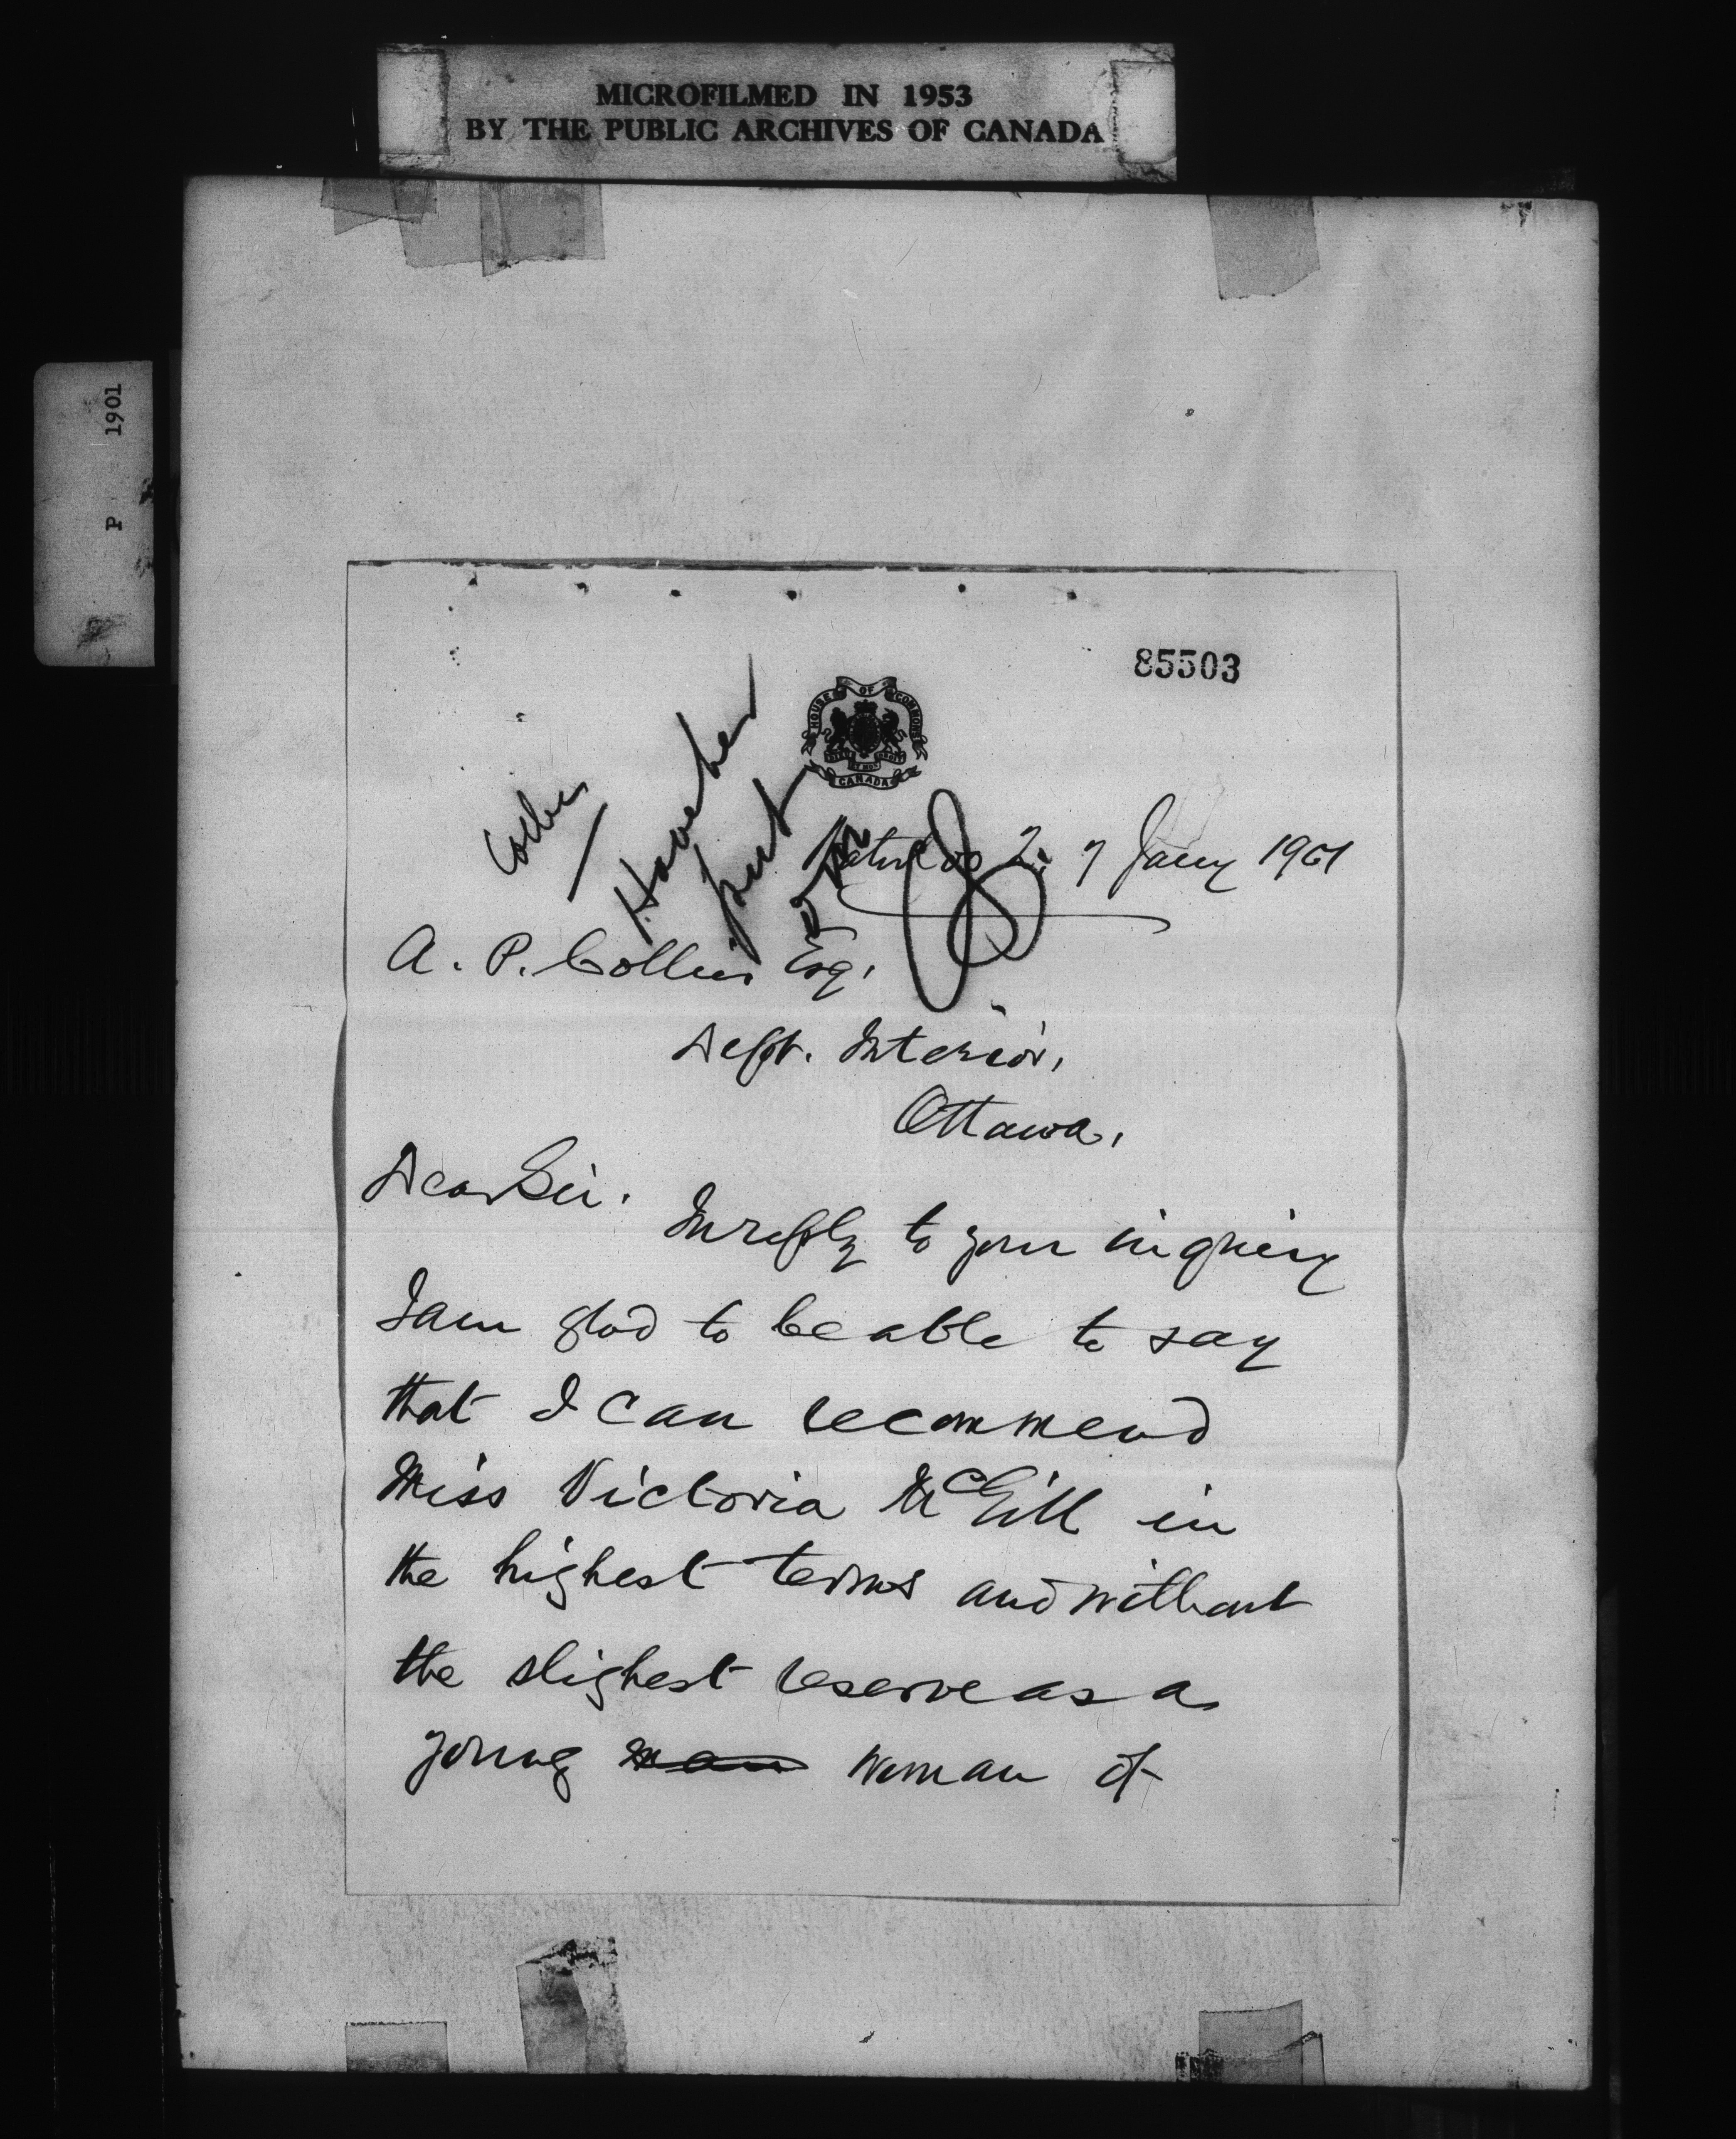 MICROFILMED IN 1953
BY THE PUBLIC ARCHIVES OF CANADA
P 1901
85503
HOUSE OF COMMONS
CANADA
Collier
Have her
put
on
Waterloo 2. 7 Jany 1901
A. P. Collier Esq.
Dept. Interior,
Ottawa,
Dear Sir.
In reply to your inquiry
I am glad to be able to say
that I can recommend
Miss Victoria McGill in
the highest terms and without
the slighest reserve as a
young man woman of